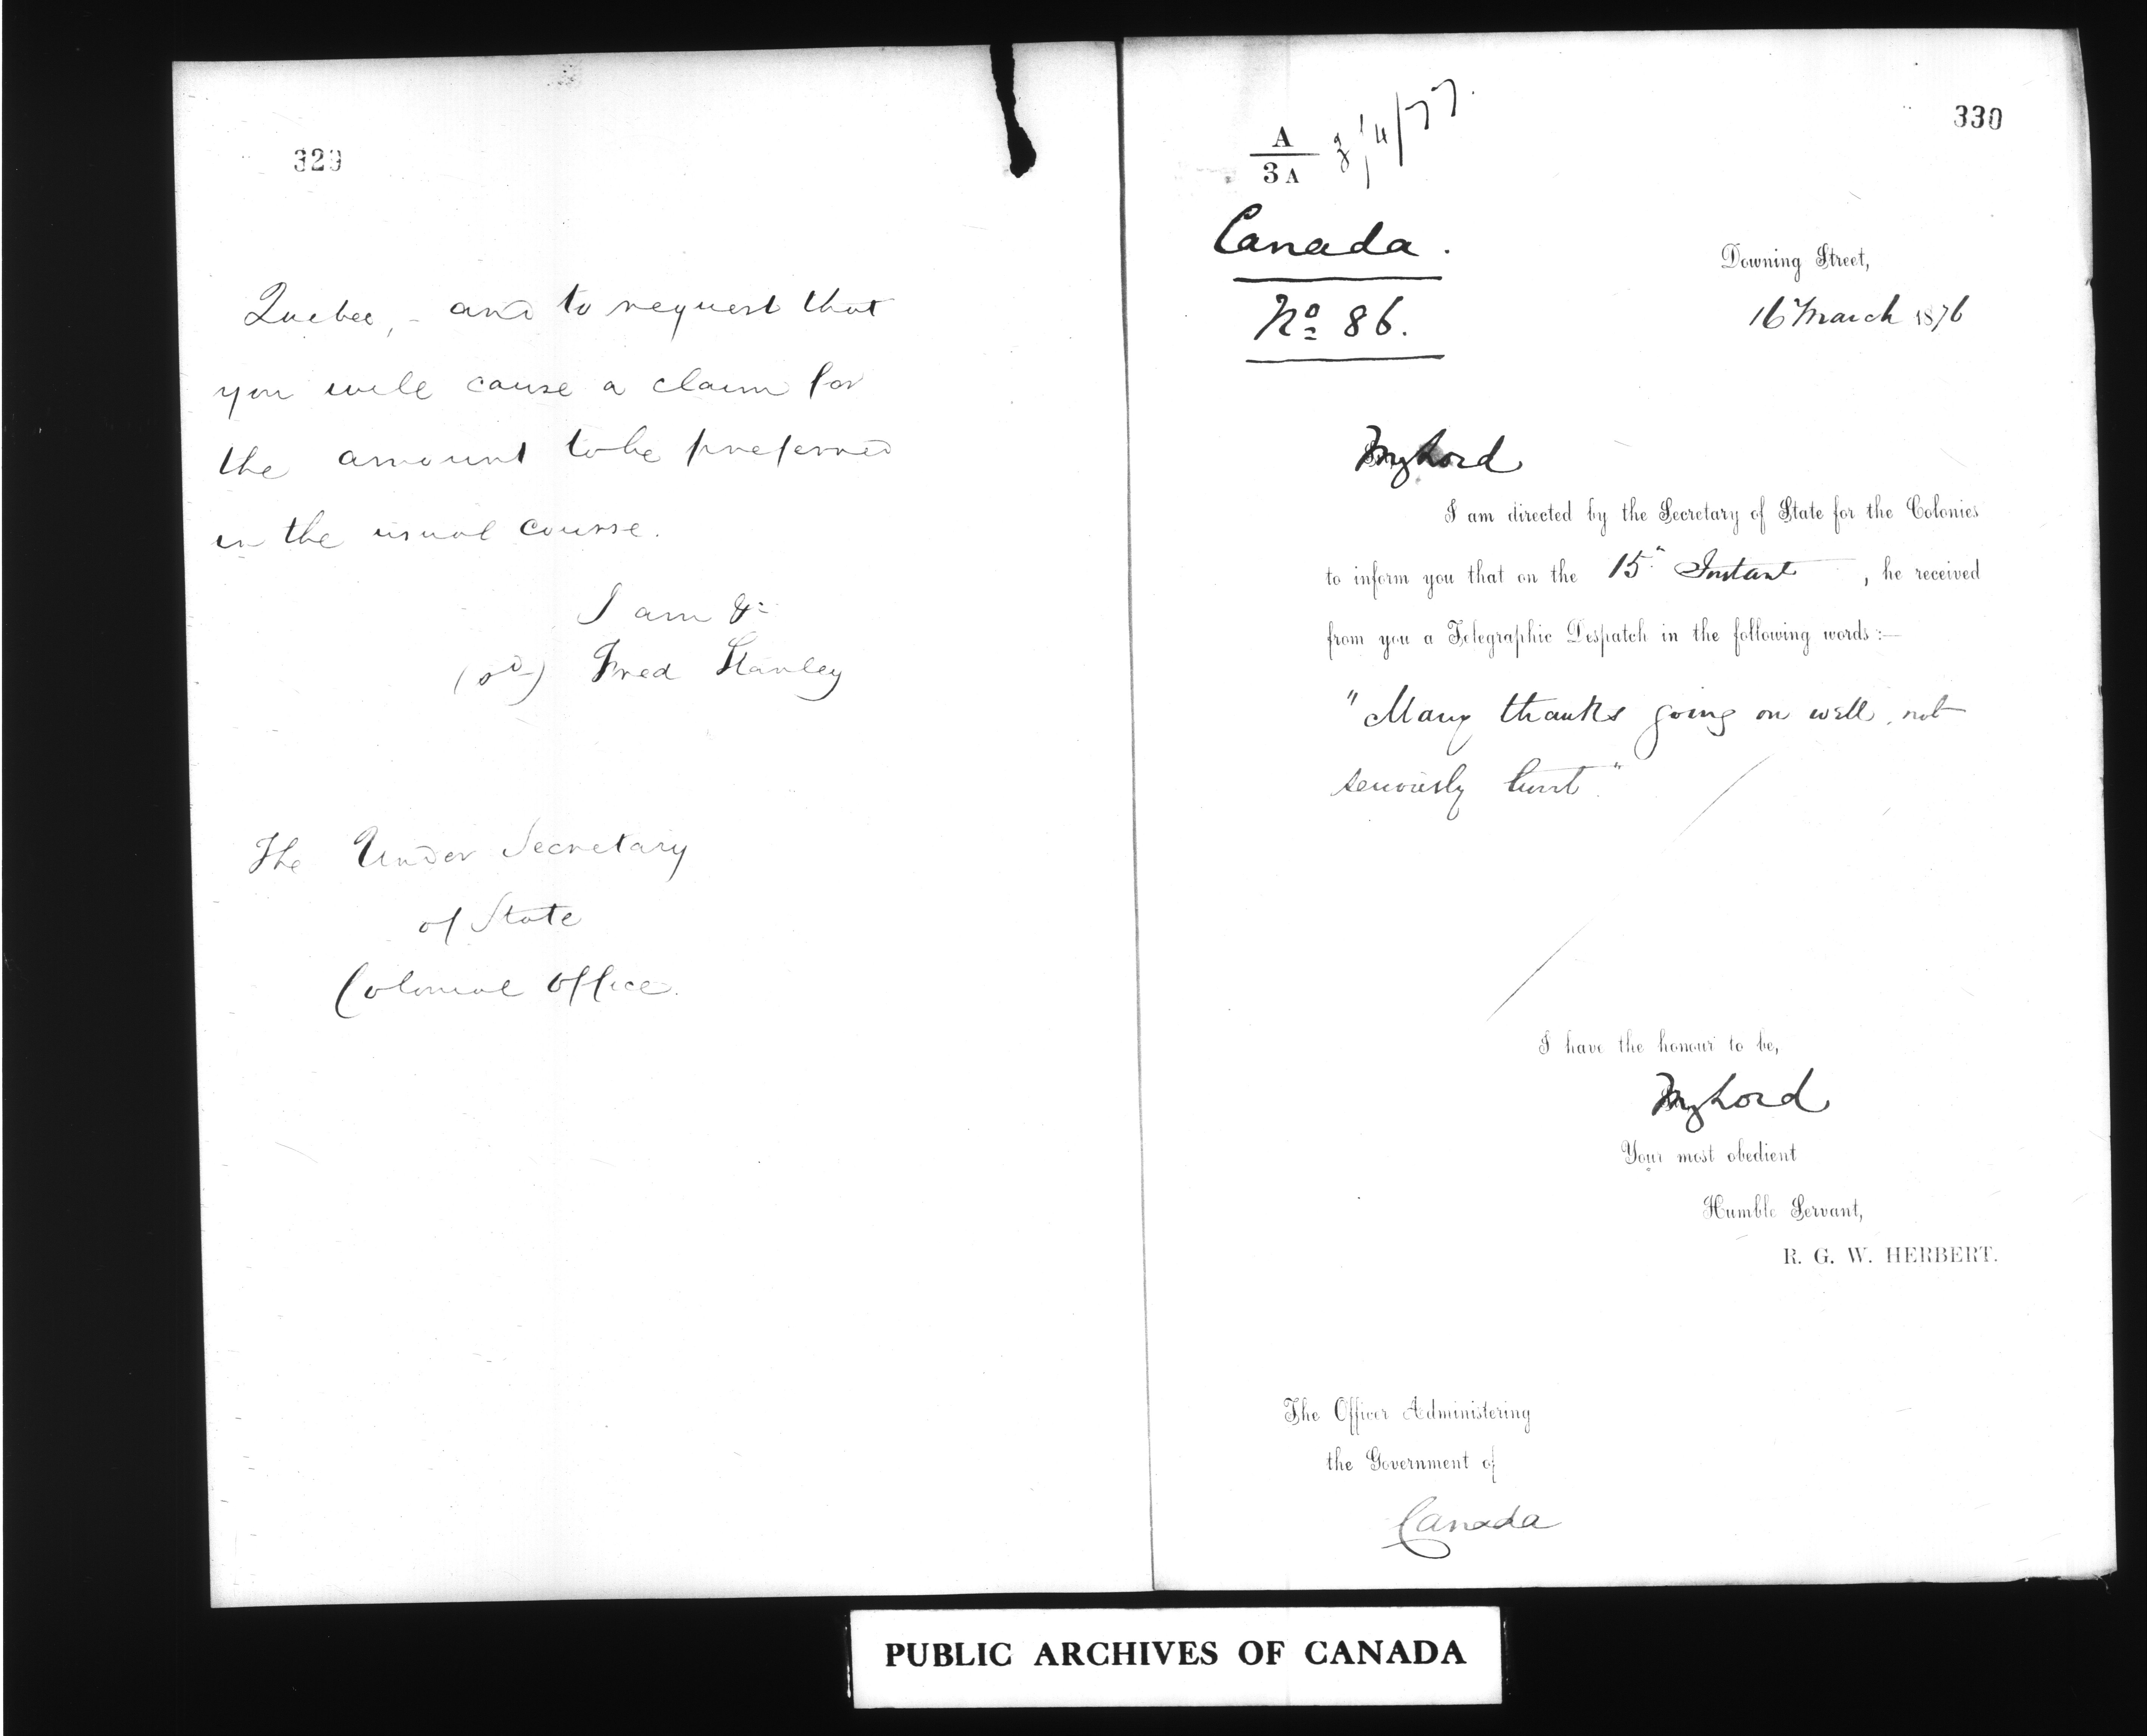 329
Quebec, - and to request that
you will cause a claim for
the amount to be preferred
in the usual course.
I am &c
(sd) Fred Stanley
The Under Secretary
of State
Colonial Office.
330
A
3A
/77.
Canada.
No 86.
Downing Street,
16 March 1876
My Lord
I am directed by the Secretary of State for the Colonies
to inform you that on the 15th Instant, he received
from you a Telegraphic Despatch in the following words:—
"Many thanks going on well, not
seriously hurt"
I have the honour to be,
My Lord
Your most obedient
Humble Servant,
R. G. W. HERBERT.
The Officer Administering
the Government of
Canada
PUBLIC ARCHIVES OF CANADA